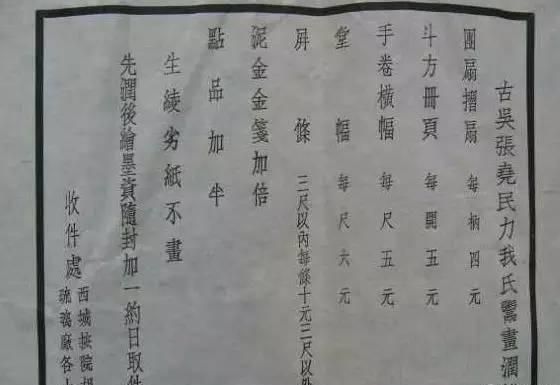 古吳張堯民力我氏鬻畫潤
團扇摺扇 每柄四元
斗方冊頁 每開五元
手卷橫幅 每尺五元
堂幅 每尺六元
屏條 三尺以內每條十元三尺以外
泥金金箋加倍
點品加半
生綾劣紙不畫
先潤後繪墨資隨封加一約日取件
收件處
西城按院胡
琉璃廠各大